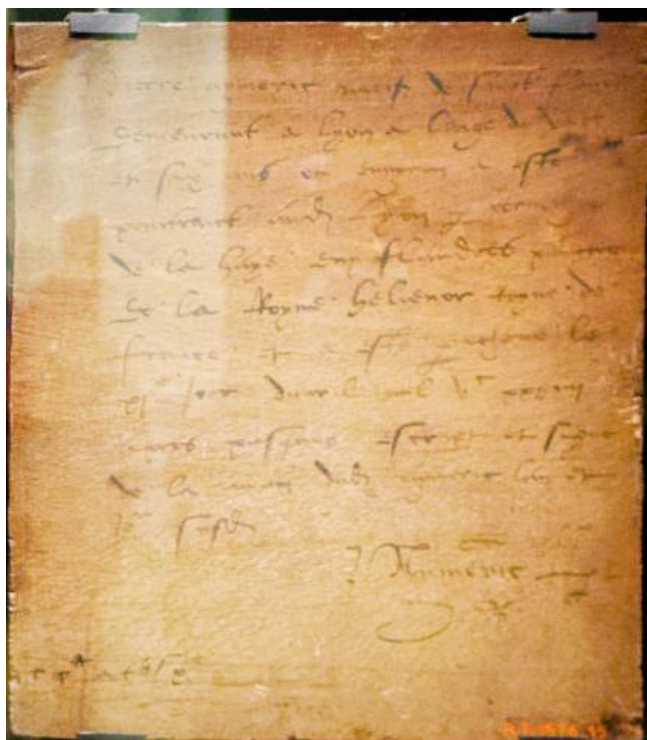 pierre aymeric natif de sainct flour
demeurant a lyon a laige de vingt
et six ans ou environ a este
pourtraict aud lyon p corneille
de la haye en flandres painctre
de la Royne helienor royne de
france et a este le
xje jour davril mil vc xxxiii
pasques escript et signe
de la main dud aymeric lan et
jour susd
Aymeric